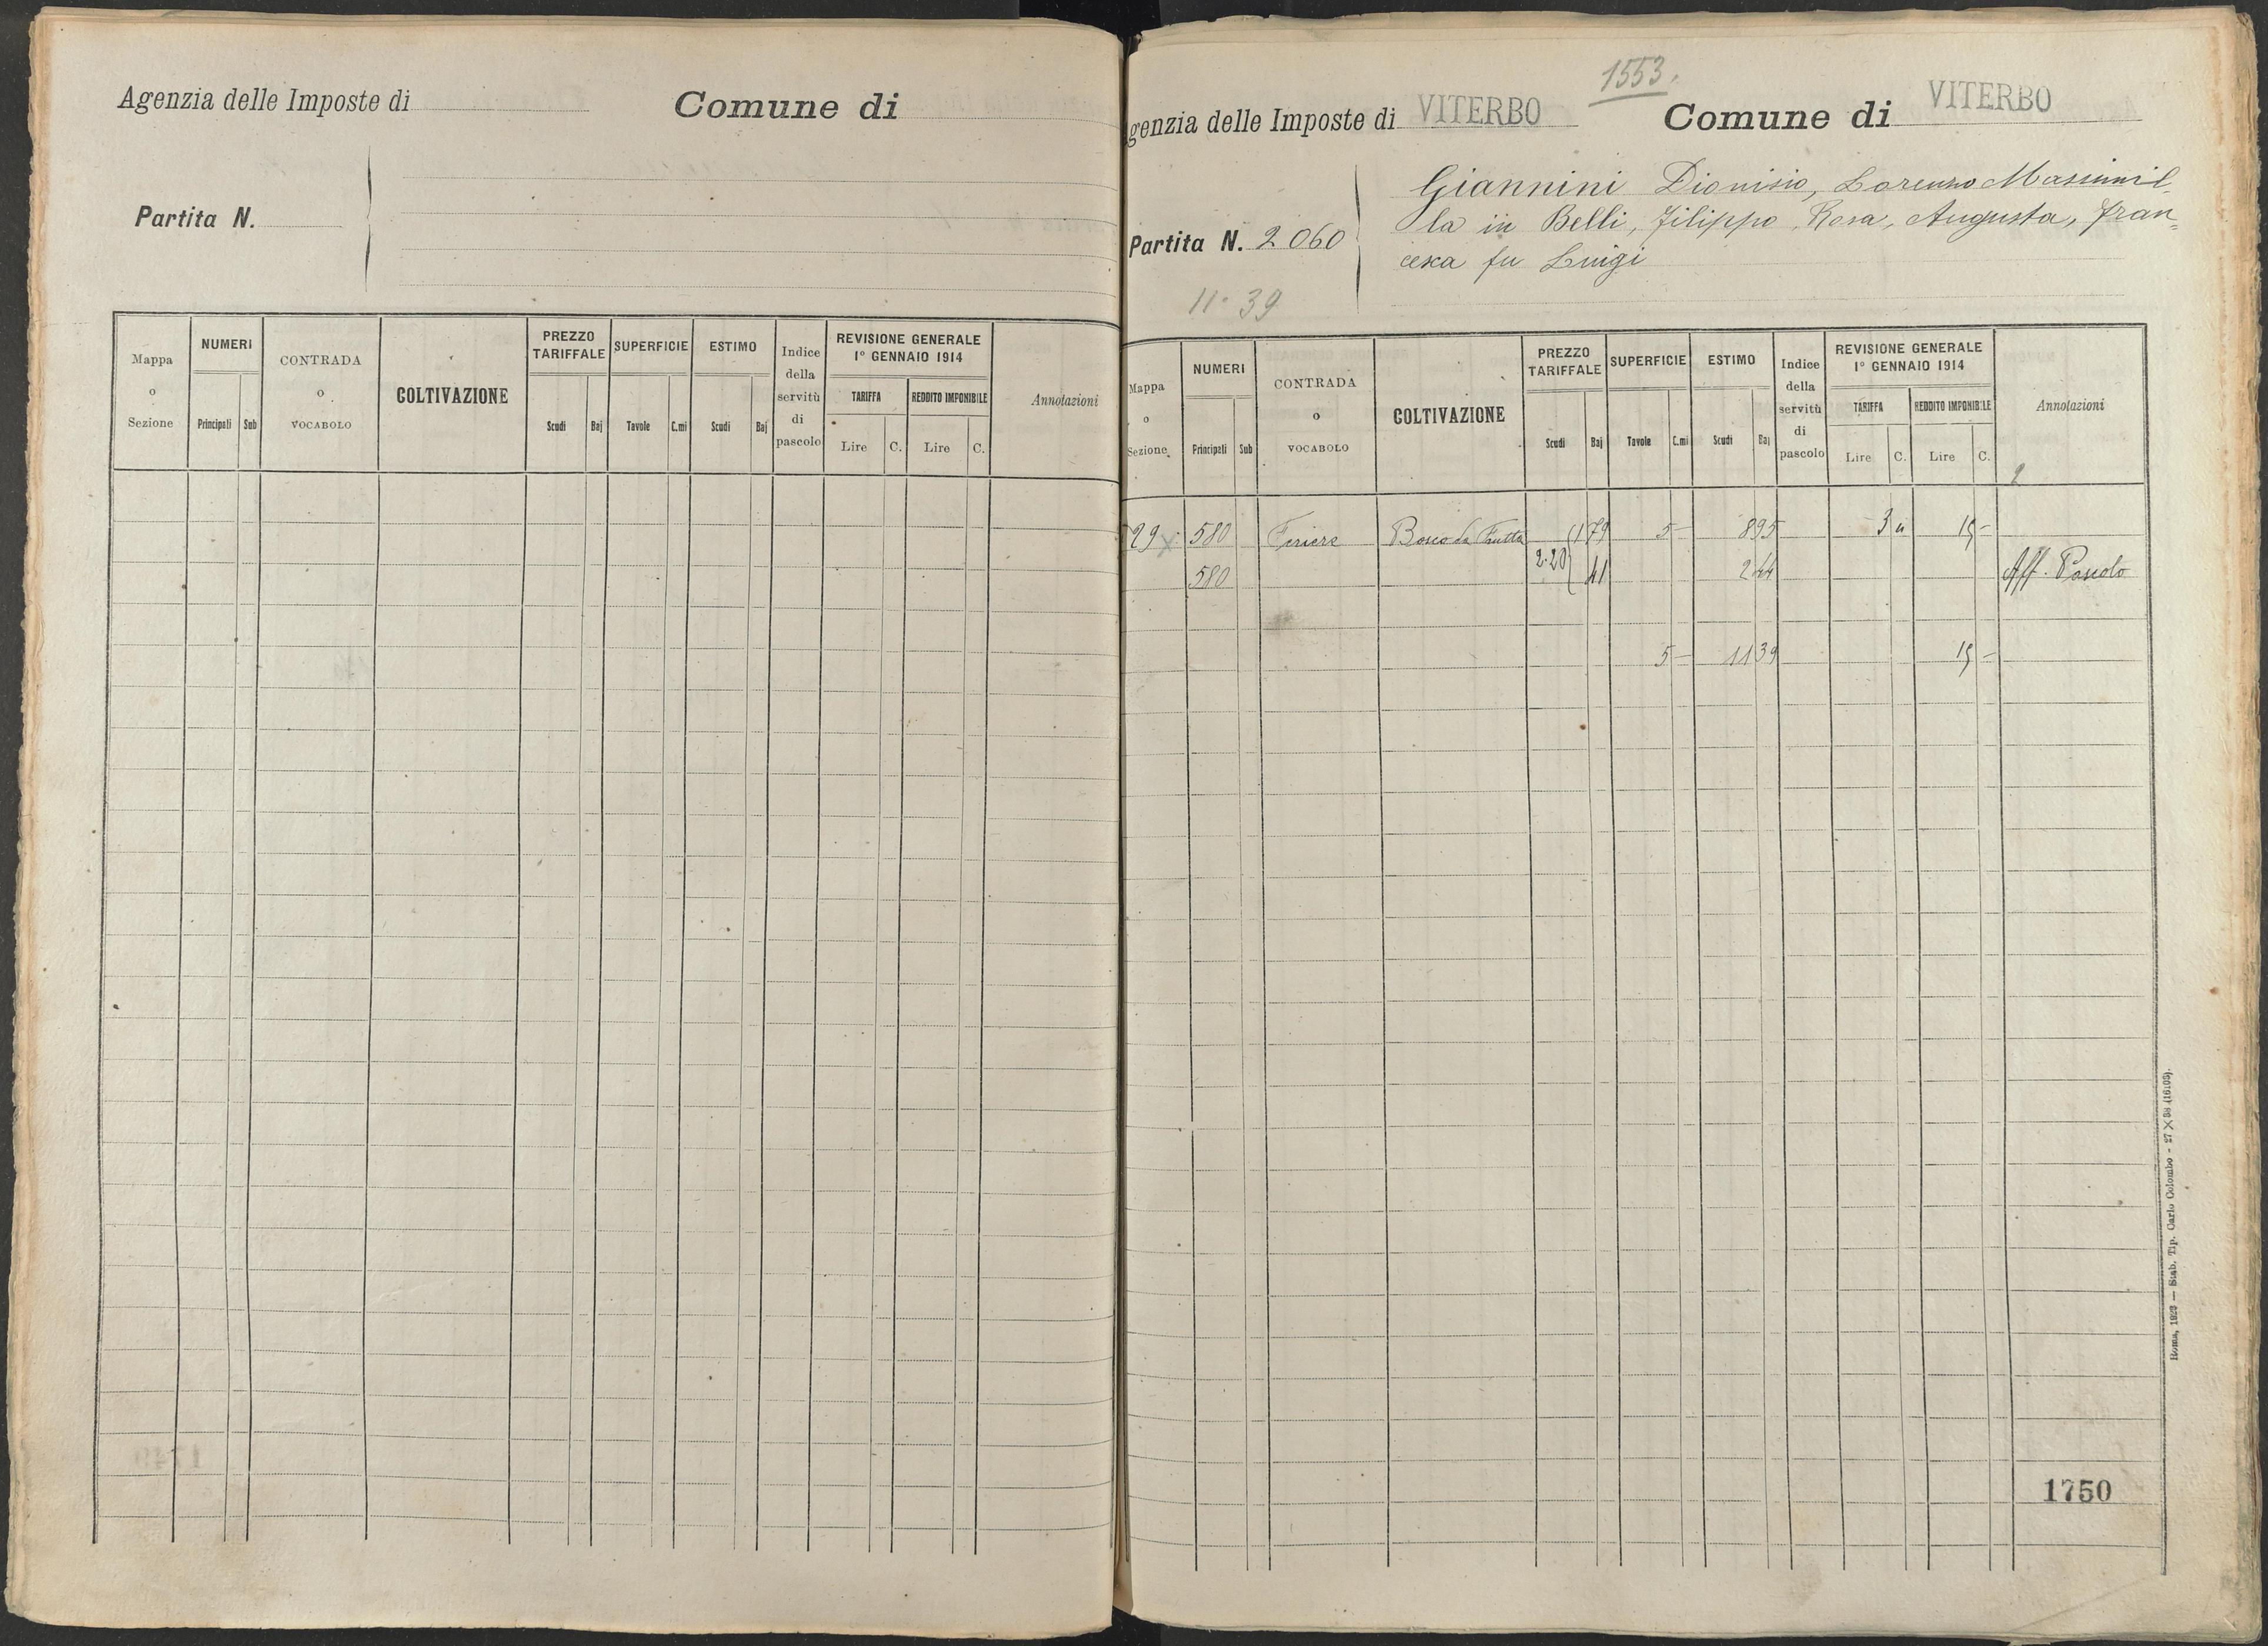 Agenzia delle Imposte di
Comune di
Partita N.
Mappa o Sezione
NUMERI
Principali Sub
CONTRADA o VOCABOLO
COLTIVAZIONE
PREZZO TARIFFALE
Scudi Baj
SUPERFICIE
Tavole C.mi
ESTIMO
Scudi Baj
Indice della servitù di pascolo
REVISIONE GENERALE
1° GENNAIO 1914
TARIFFA
Lire C.
REDDITO IMPONIBILE
Lire C.
Annotazioni
1553.
genzia delle Imposte di VITERBO
Comune di VITERBO
Partita N. 2060
Giannini Dionisio, Lorenzo Massimil-
la in Belli, Filippo, Rosa, Augusta, Fran=
cesca fu Luigi
11.39
Mappa o Sezione
NUMERI
Principali Sub
CONTRADA o VOCABOLO
COLTIVAZIONE
PREZZO TARIFFALE
Scudi Baj
SUPERFICIE
Tavole C.mi
ESTIMO
Scudi Baj
Indice della servitù di pascolo
REVISIONE GENERALE
1° GENNAIO 1914
TARIFFA
Lire C.
REDDITO IMPONIBILE
Lire C.
Annotazioni
29 x 580 Bosco da Frutta 1 79 5 - 8 95 3 " 15 -
580 2.20 41 2 44 Aff. Pascolo
5 - 11 39 15 -
1750
Roma, 1923 — Stab. Tip. Carlo Colombo - 27 X 38 (16105).